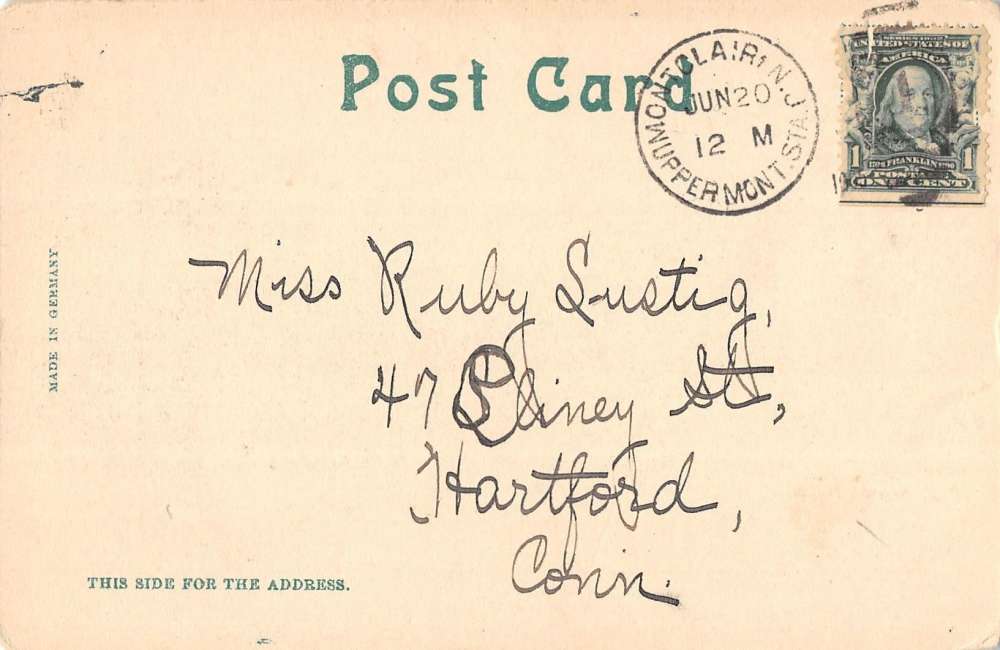 Post Card
MONTCLAIR, N.J.
JUN 20
12 M
UPPER MONT. STA.
SERIES 1902
UNITED STATES OF
AMERICA
1 1706 FRANKLIN 1790 1
POSTAGE
ONE CENT
MADE IN GERMANY
Miss Ruby Lustig,
47 Pliney St,
Hartford,
Conn.
THIS SIDE FOR THE ADDRESS.